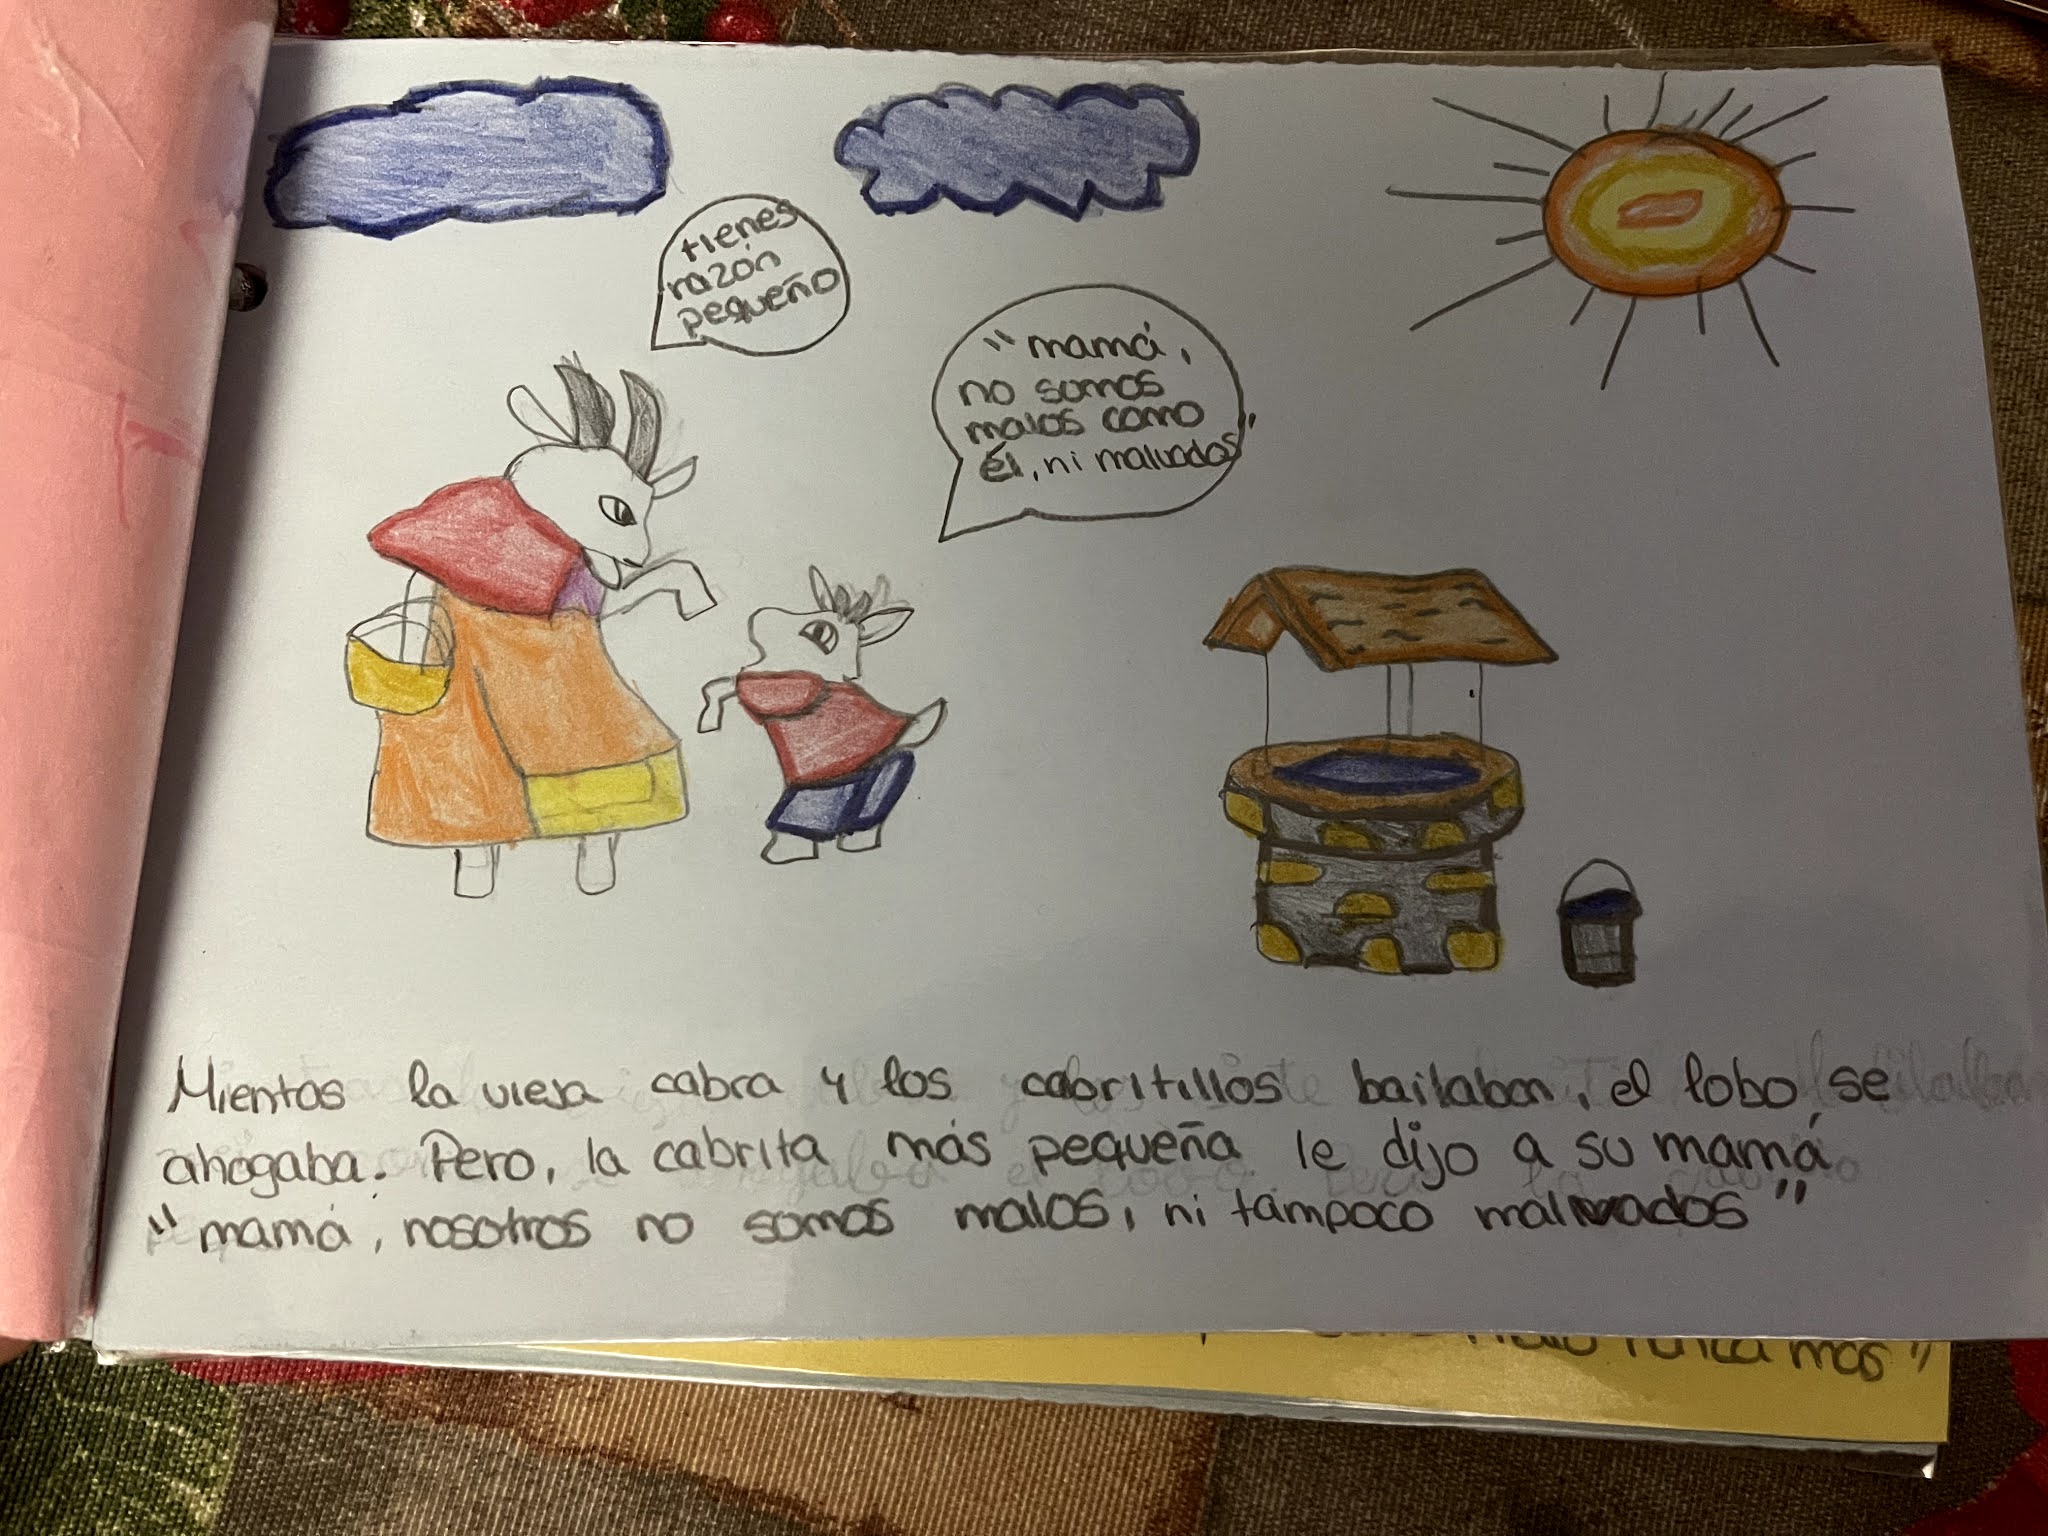 tienes
razón
pequeño
"mamá,
no somos
malos como
él, ni malvados"
Mientas la vieja cabra y los cabritillos bailaban, el lobo, se
ahogaba. Pero, la cabrita más pequeña le dijo a su mamá
"mamá, nosotros no somos malos, ni tampoco malvados"
nunca mas"